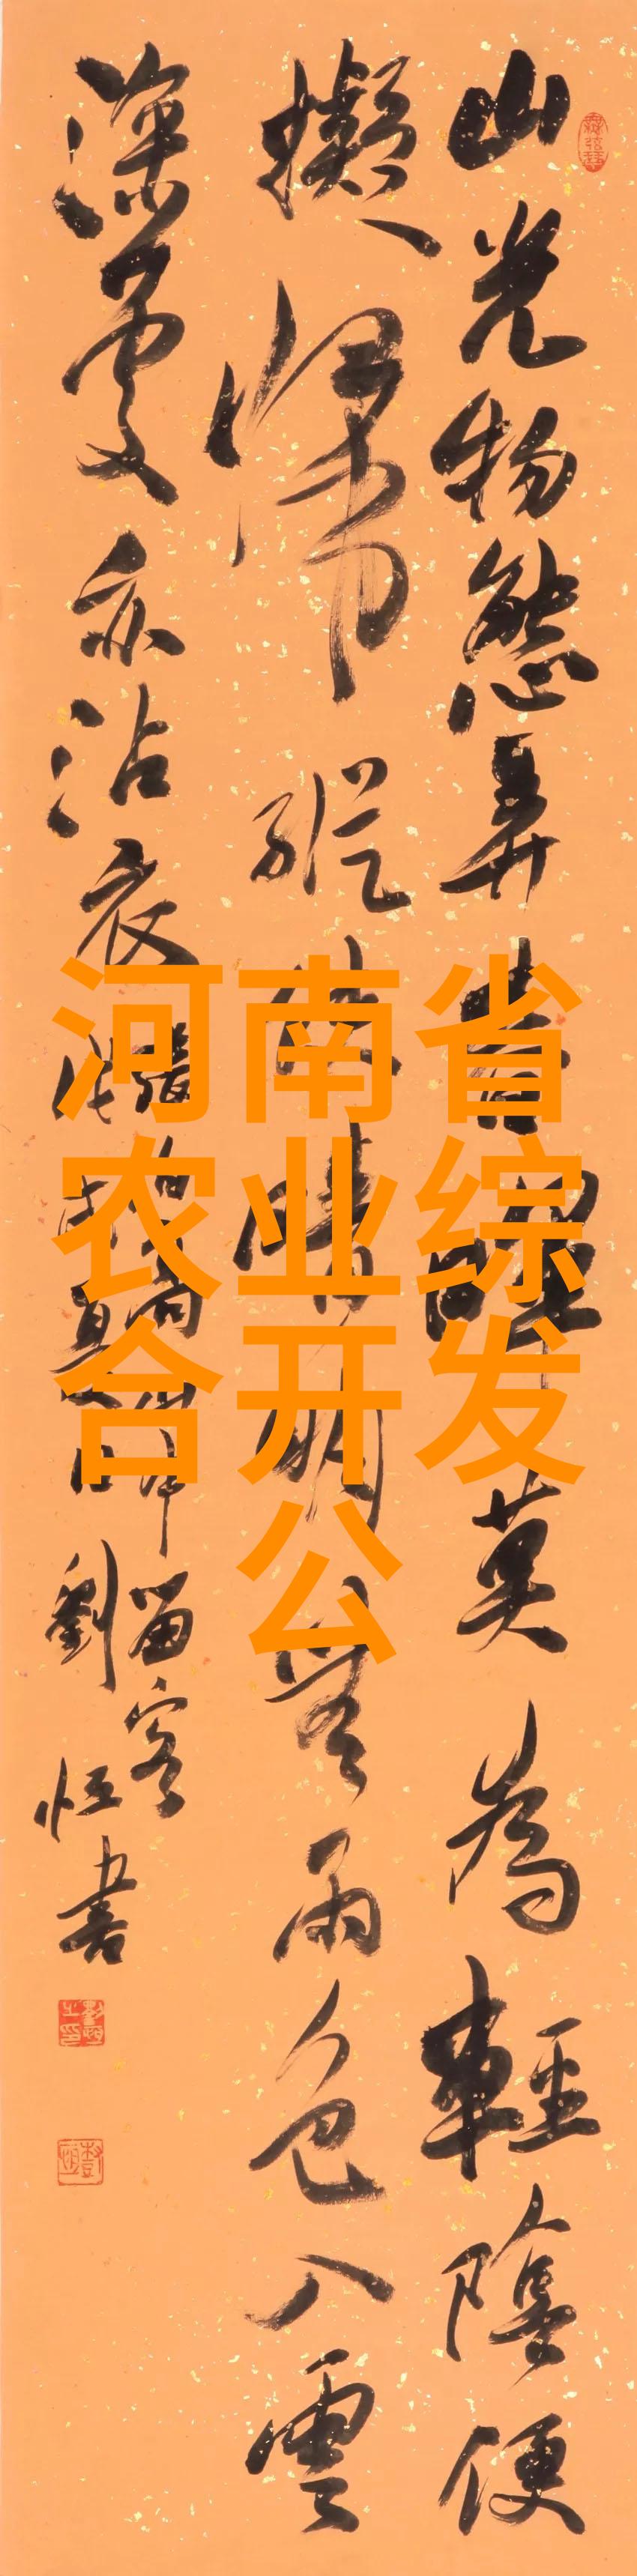 山光物態弄春暉莫為輕陰便
擬歸縱使晴明無雨色入雲
深處亦沾衣
張留客
劉恒書
河南省
农业综
合开发
公